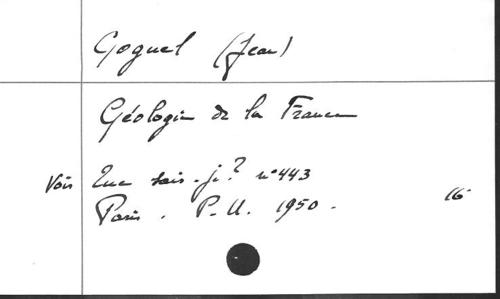 Goguel (Jean)
Géologie de la France
Voir Que sais-je? n°443
Paris. P.U. 1950. 16